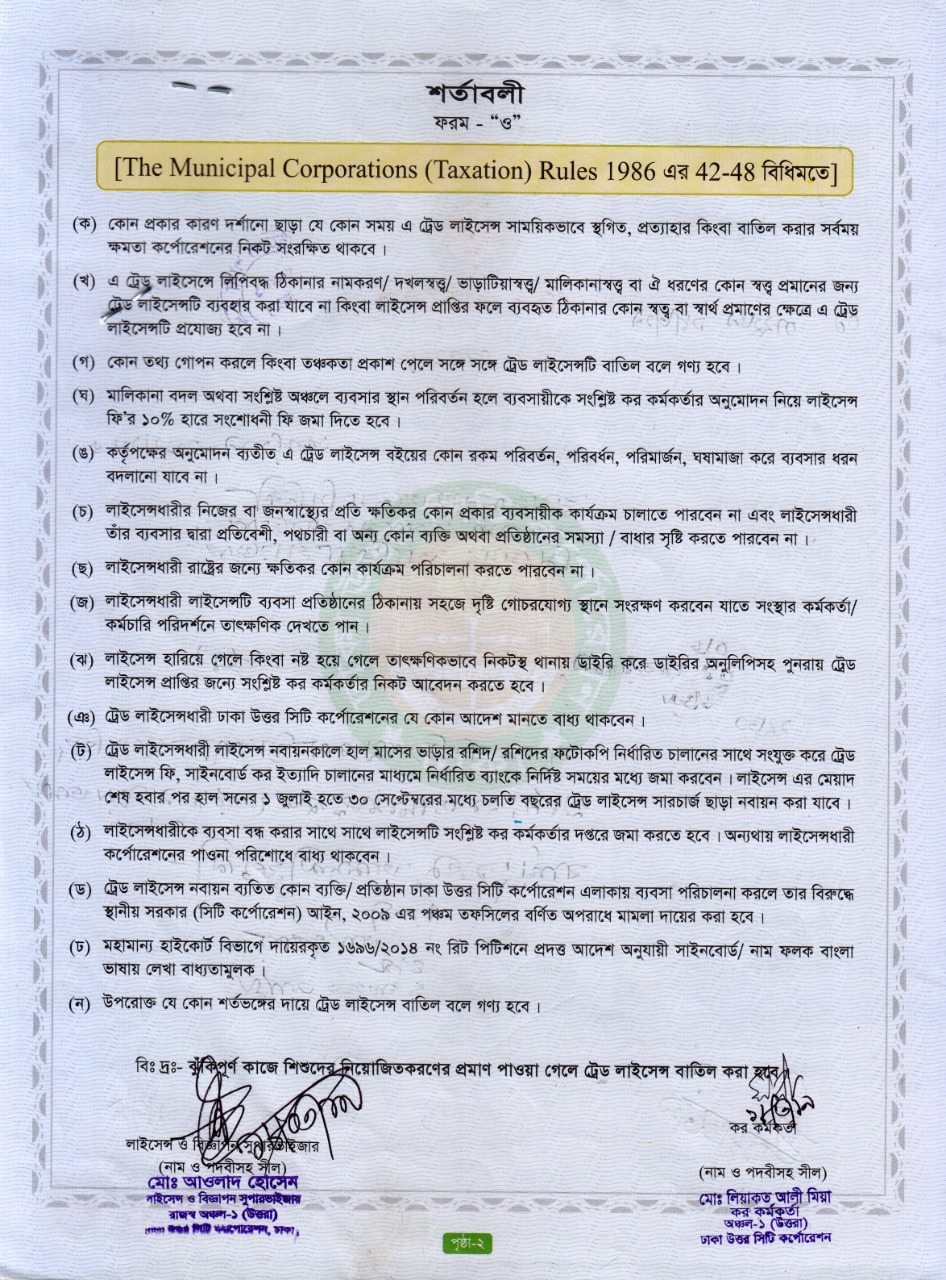 শর্তাবলী
ফরম - “ও”
[The Municipal Corporations (Taxation) Rules 1986 এর 42-48 বিধিমতে]
(ক) কোন প্রকার কারণ দর্শানো ছাড়া যে কোন সময় এ ট্রেড লাইসেন্স সাময়িকভাবে স্থগিত, প্রত্যাহার কিংবা বাতিল করার সর্বময়
ক্ষমতা কর্পোরেশনের নিকট সংরক্ষিত থাকবে।
(খ) এ ট্রেড লাইসেন্সে লিপিবদ্ধ ঠিকানার নামকরণ/ দখলস্বত্ত্ব/ ভাড়াটিয়াস্বত্ত্ব/ মালিকানাস্বত্ত্ব বা ঐ ধরণের কোন স্বত্ত্ব প্রমানের জন্য
ট্রেড লাইসেন্সটি ব্যবহার করা যাবে না কিংবা লাইসেন্স প্রাপ্তির ফলে ব্যবহৃত ঠিকানার কোন স্বত্ব বা স্বার্থ প্রমাণের ক্ষেত্রে এ ট্রেড
লাইসেন্সটি প্রযোজ্য হবে না।
(গ) কোন তথ্য গোপন করলে কিংবা তঞ্চকতা প্রকাশ পেলে সঙ্গে সঙ্গে ট্রেড লাইসেন্সটি বাতিল বলে গণ্য হবে।
(ঘ) মালিকানা বদল অথবা সংশ্লিষ্ট অঞ্চলে ব্যবসার স্থান পরিবর্তন হলে ব্যবসায়ীকে সংশ্লিষ্ট কর কর্মকর্তার অনুমোদন নিয়ে লাইসেন্স
ফি'র ১০% হারে সংশোধনী ফি জমা দিতে হবে।
(ঙ) কর্তৃপক্ষের অনুমোদন ব্যতীত এ ট্রেড লাইসেন্স বইয়ের কোন রকম পরিবর্তন, পরিবর্ধন, পরিমার্জন, ঘষামাজা করে ব্যবসার ধরন
বদলানো যাবে না।
(চ) লাইসেন্সধারীর নিজের বা জনস্বাস্থ্যের প্রতি ক্ষতিকর কোন প্রকার ব্যবসায়ীক কার্যক্রম চালাতে পারবেন না এবং লাইসেন্সধারী
তাঁর ব্যবসার দ্বারা প্রতিবেশী, পথচারী বা অন্য কোন ব্যক্তি অথবা প্রতিষ্ঠানের সমস্যা / বাধার সৃষ্টি করতে পারবেন না।
(ছ) লাইসেন্সধারী রাষ্ট্রের জন্যে ক্ষতিকর কোন কার্যক্রম পরিচালনা করতে পারবেন না।
(জ) লাইসেন্সধারী লাইসেন্সটি ব্যবসা প্রতিষ্ঠানের ঠিকানায় সহজে দৃষ্টি গোচরযোগ্য স্থানে সংরক্ষণ করবেন যাতে সংস্থার কর্মকর্তা/
কর্মচারি পরিদর্শনে তাৎক্ষণিক দেখতে পান।
(ঝ) লাইসেন্স হারিয়ে গেলে কিংবা নষ্ট হয়ে গেলে তাৎক্ষণিকভাবে নিকটস্থ থানায় ডাইরি করে ডাইরির অনুলিপিসহ পুনরায় ট্রেড
লাইসেন্স প্রাপ্তির জন্যে সংশ্লিষ্ট কর কর্মকর্তার নিকট আবেদন করতে হবে।
(ঞ) ট্রেড লাইসেন্সধারী ঢাকা উত্তর সিটি কর্পোরেশনের যে কোন আদেশ মানতে বাধ্য থাকবেন।
(ট) ট্রেড লাইসেন্সধারী লাইসেন্স নবায়নকালে হাল মাসের ভাড়ার রশিদ/ রশিদের ফটোকপি নির্ধারিত চালানের সাথে সংযুক্ত করে ট্রেড
লাইসেন্স ফি, সাইনবোর্ড কর ইত্যাদি চালানের মাধ্যমে নির্ধারিত ব্যাংকে নির্দিষ্ট সময়ের মধ্যে জমা করবেন। লাইসেন্স এর মেয়াদ
শেষ হবার পর হাল সনের ১ জুলাই হতে ৩০ সেপ্টেম্বরের মধ্যে চলতি বছরের ট্রেড লাইসেন্স সারচার্জ ছাড়া নবায়ন করা যাবে।
(ঠ) লাইসেন্সধারীকে ব্যবসা বন্ধ করার সাথে সাথে লাইসেন্সটি সংশ্লিষ্ট কর কর্মকর্তার দপ্তরে জমা করতে হবে। অন্যথায় লাইসেন্সধারী
কর্পোরেশনের পাওনা পরিশোধে বাধ্য থাকবেন।
(ড) ট্রেড লাইসেন্স নবায়ন ব্যতিত কোন ব্যক্তি/ প্রতিষ্ঠান ঢাকা উত্তর সিটি কর্পোরেশন এলাকায় ব্যবসা পরিচালনা করলে তার বিরুদ্ধে
স্থানীয় সরকার (সিটি কর্পোরেশন) আইন, ২০০৯ এর পঞ্চম তফসিলের বর্ণিত অপরাধে মামলা দায়ের করা হবে।
(ঢ) মহামান্য হাইকোর্ট বিভাগে দায়েরকৃত ১৬৯৬/২০১৪ নং রিট পিটিশনে প্রদত্ত আদেশ অনুযায়ী সাইনবোর্ড/ নাম ফলক বাংলা
ভাষায় লেখা বাধ্যতামুলক।
(ন) উপরোক্ত যে কোন শর্তভঙ্গের দায়ে ট্রেড লাইসেন্স বাতিল বলে গণ্য হবে।
বিঃ দ্রঃ- ঝুঁকিপূর্ণ কাজে শিশুদের নিয়োজিতকরণের প্রমাণ পাওয়া গেলে ট্রেড লাইসেন্স বাতিল করা হবে।
লাইসেন্স ও বিজ্ঞাপন সুপারভাইজার
(নাম ও পদবীসহ সীল)
মোঃ আওলাদ হোসেন
লাইসেন্স ও বিজ্ঞাপন সুপারভাইজার
রাজস্ব অঞ্চল-১ (উত্তরা)
সিটি কর্পোরেশন, ঢাকা,
কর কর্মকর্তা
(নাম ও পদবীসহ সীল)
মোঃ লিয়াকত আলী মিয়া
কর কর্মকর্তা
অঞ্চল-১ (উত্তরা)
ঢাকা উত্তর সিটি কর্পোরেশন
পৃষ্ঠা-২